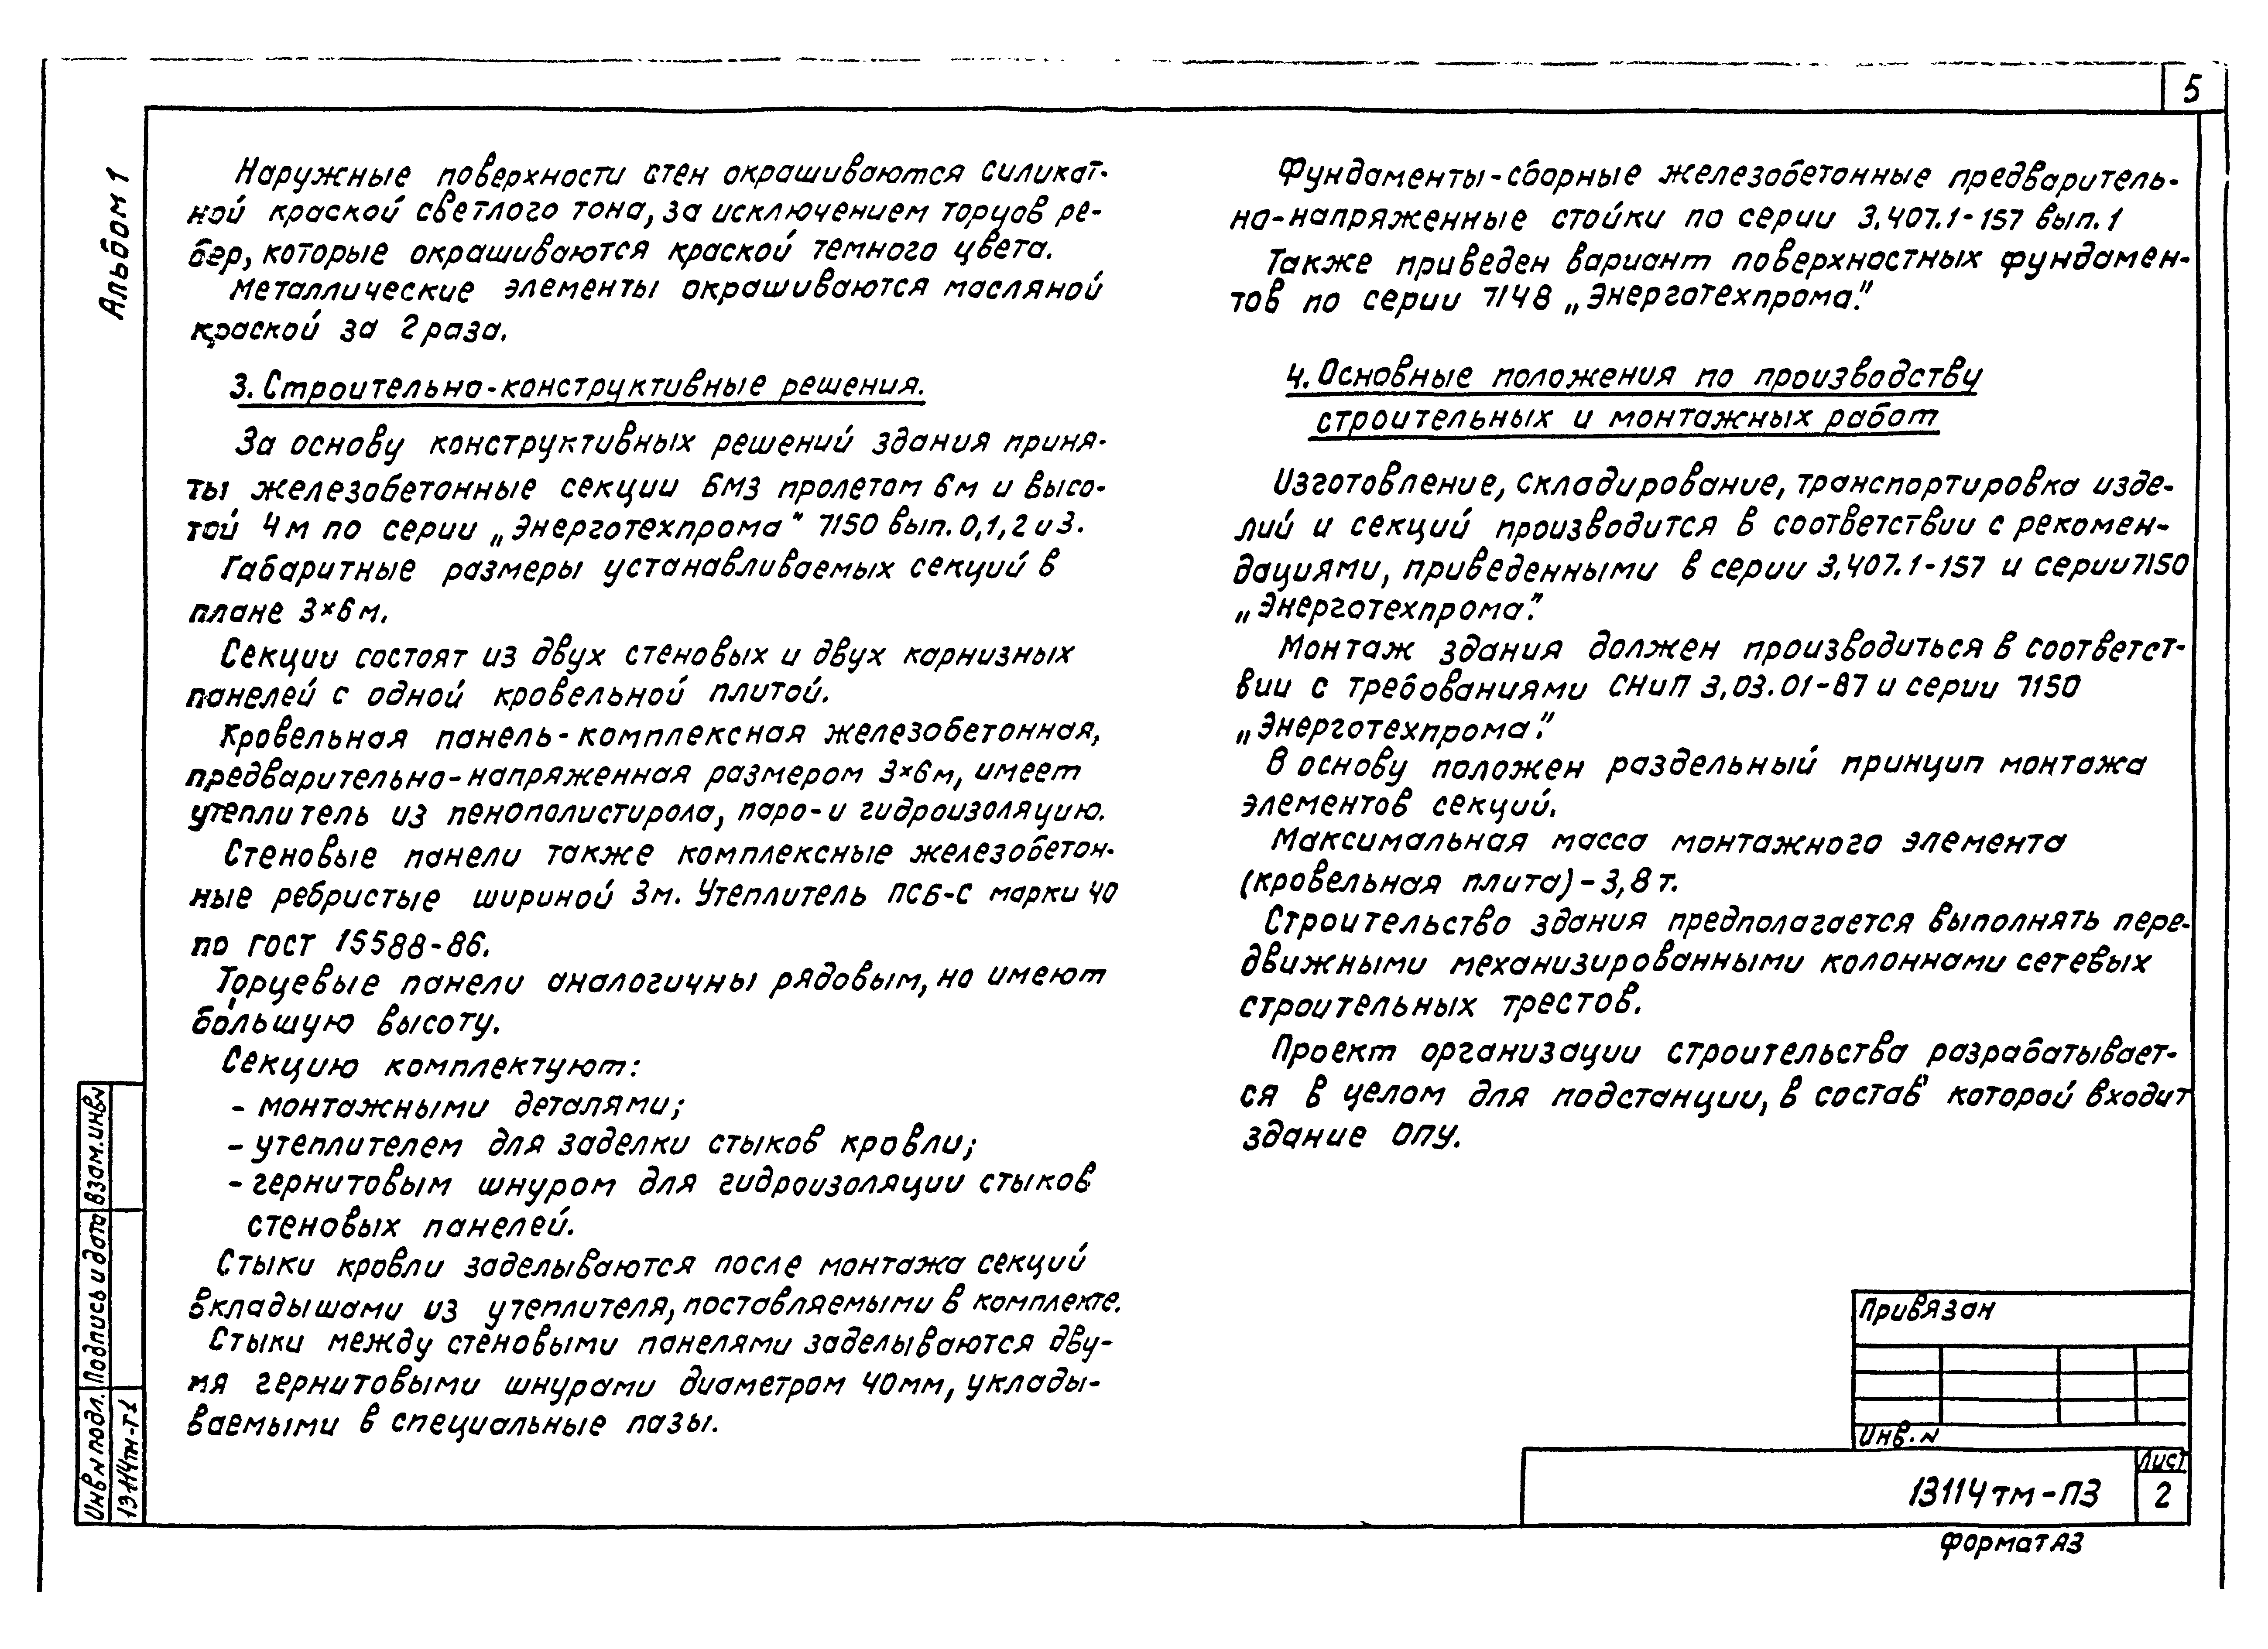 5
Альбом 1
Наружные поверхности стен окрашиваются силикат-
ной краской светлого тона, за исключением торцов ре-
бер, которые окрашиваются краской темного цвета.
Металлические элементы окрашиваются масляной
краской за 2 раза.
3. Строительно-конструктивные решения.
За основу конструктивных решений здания приня-
ты железобетонные секции БМЗ пролетом 6м и высо-
той 4м по серии „Энерготехпрома" 7150 вып. 0,1,2 и 3.
Габаритные размеры устанавливаемых секций в
плане 3×6м.
Секции состоят из двух стеновых и двух карнизных
панелей с одной кровельной плитой.
Кровельная панель - комплексная железобетонная,
предварительно-напряженная размером 3×6м, имеет
утеплитель из пенополистирола, паро- и гидроизоляцию.
Стеновые панели также комплексные железобетон-
ные ребристые шириной 3м. Утеплитель ПСБ-С марки 40
по ГОСТ 15588-86.
Торцевые панели аналогичны рядовым, но имеют
большую высоту.
Секцию комплектуют:
- монтажными деталями;
- утеплителем для заделки стыков кровли;
- гернитовым шнуром для гидроизоляции стыков
стеновых панелей.
Стыки кровли заделываются после монтажа секций
вкладышами из утеплителя, поставляемыми в комплекте.
Стыки между стеновыми панелями заделываются дву-
мя гернитовыми шнурами диаметром 40мм, уклады-
ваемыми в специальные пазы.
Фундаменты - сборные железобетонные предваритель-
но-напряженные стойки по серии 3.407.1-157 вып. 1
Также приведен вариант поверхностных фундамен-
тов по серии 7148 „Энерготехпрома".
4. Основные положения по производству
строительных и монтажных работ
Изготовление, складирование, транспортировка изде-
лий и секций производится в соответствии с рекомен-
дациями, приведенными в серии 3.407.1-157 и серии 7150
„Энерготехпрома".
Монтаж здания должен производиться в соответст-
вии с требованиями СНиП 3.03.01-87 и серии 7150
„Энерготехпрома".
В основу положен раздельный принцип монтажа
элементов секций.
Максимальная масса монтажного элемента
(кровельная плита) - 3,8 т.
Строительство здания предполагается выполнять пере-
движными механизированными колоннами сетевых
строительных трестов.
Проект организации строительства разрабатывает-
ся в целом для подстанции, в состав которой входит
здание ОПУ.
Взам.инв.N
Подпись и дата
Инв.N подл.
13114тм-Т1
Привязан
Инв.N
13114тм-ПЗ
Лист
2
Формат А3